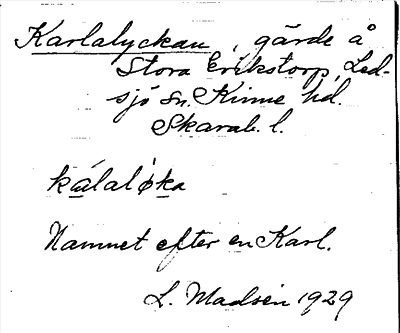 Karlalyckan, gärde å
Stora Erikstorp, Led-
sjö sn. Kinne hd.
Skarab. l.
kálaløka
Namnet efter en Karl.
L. Madsén 1929